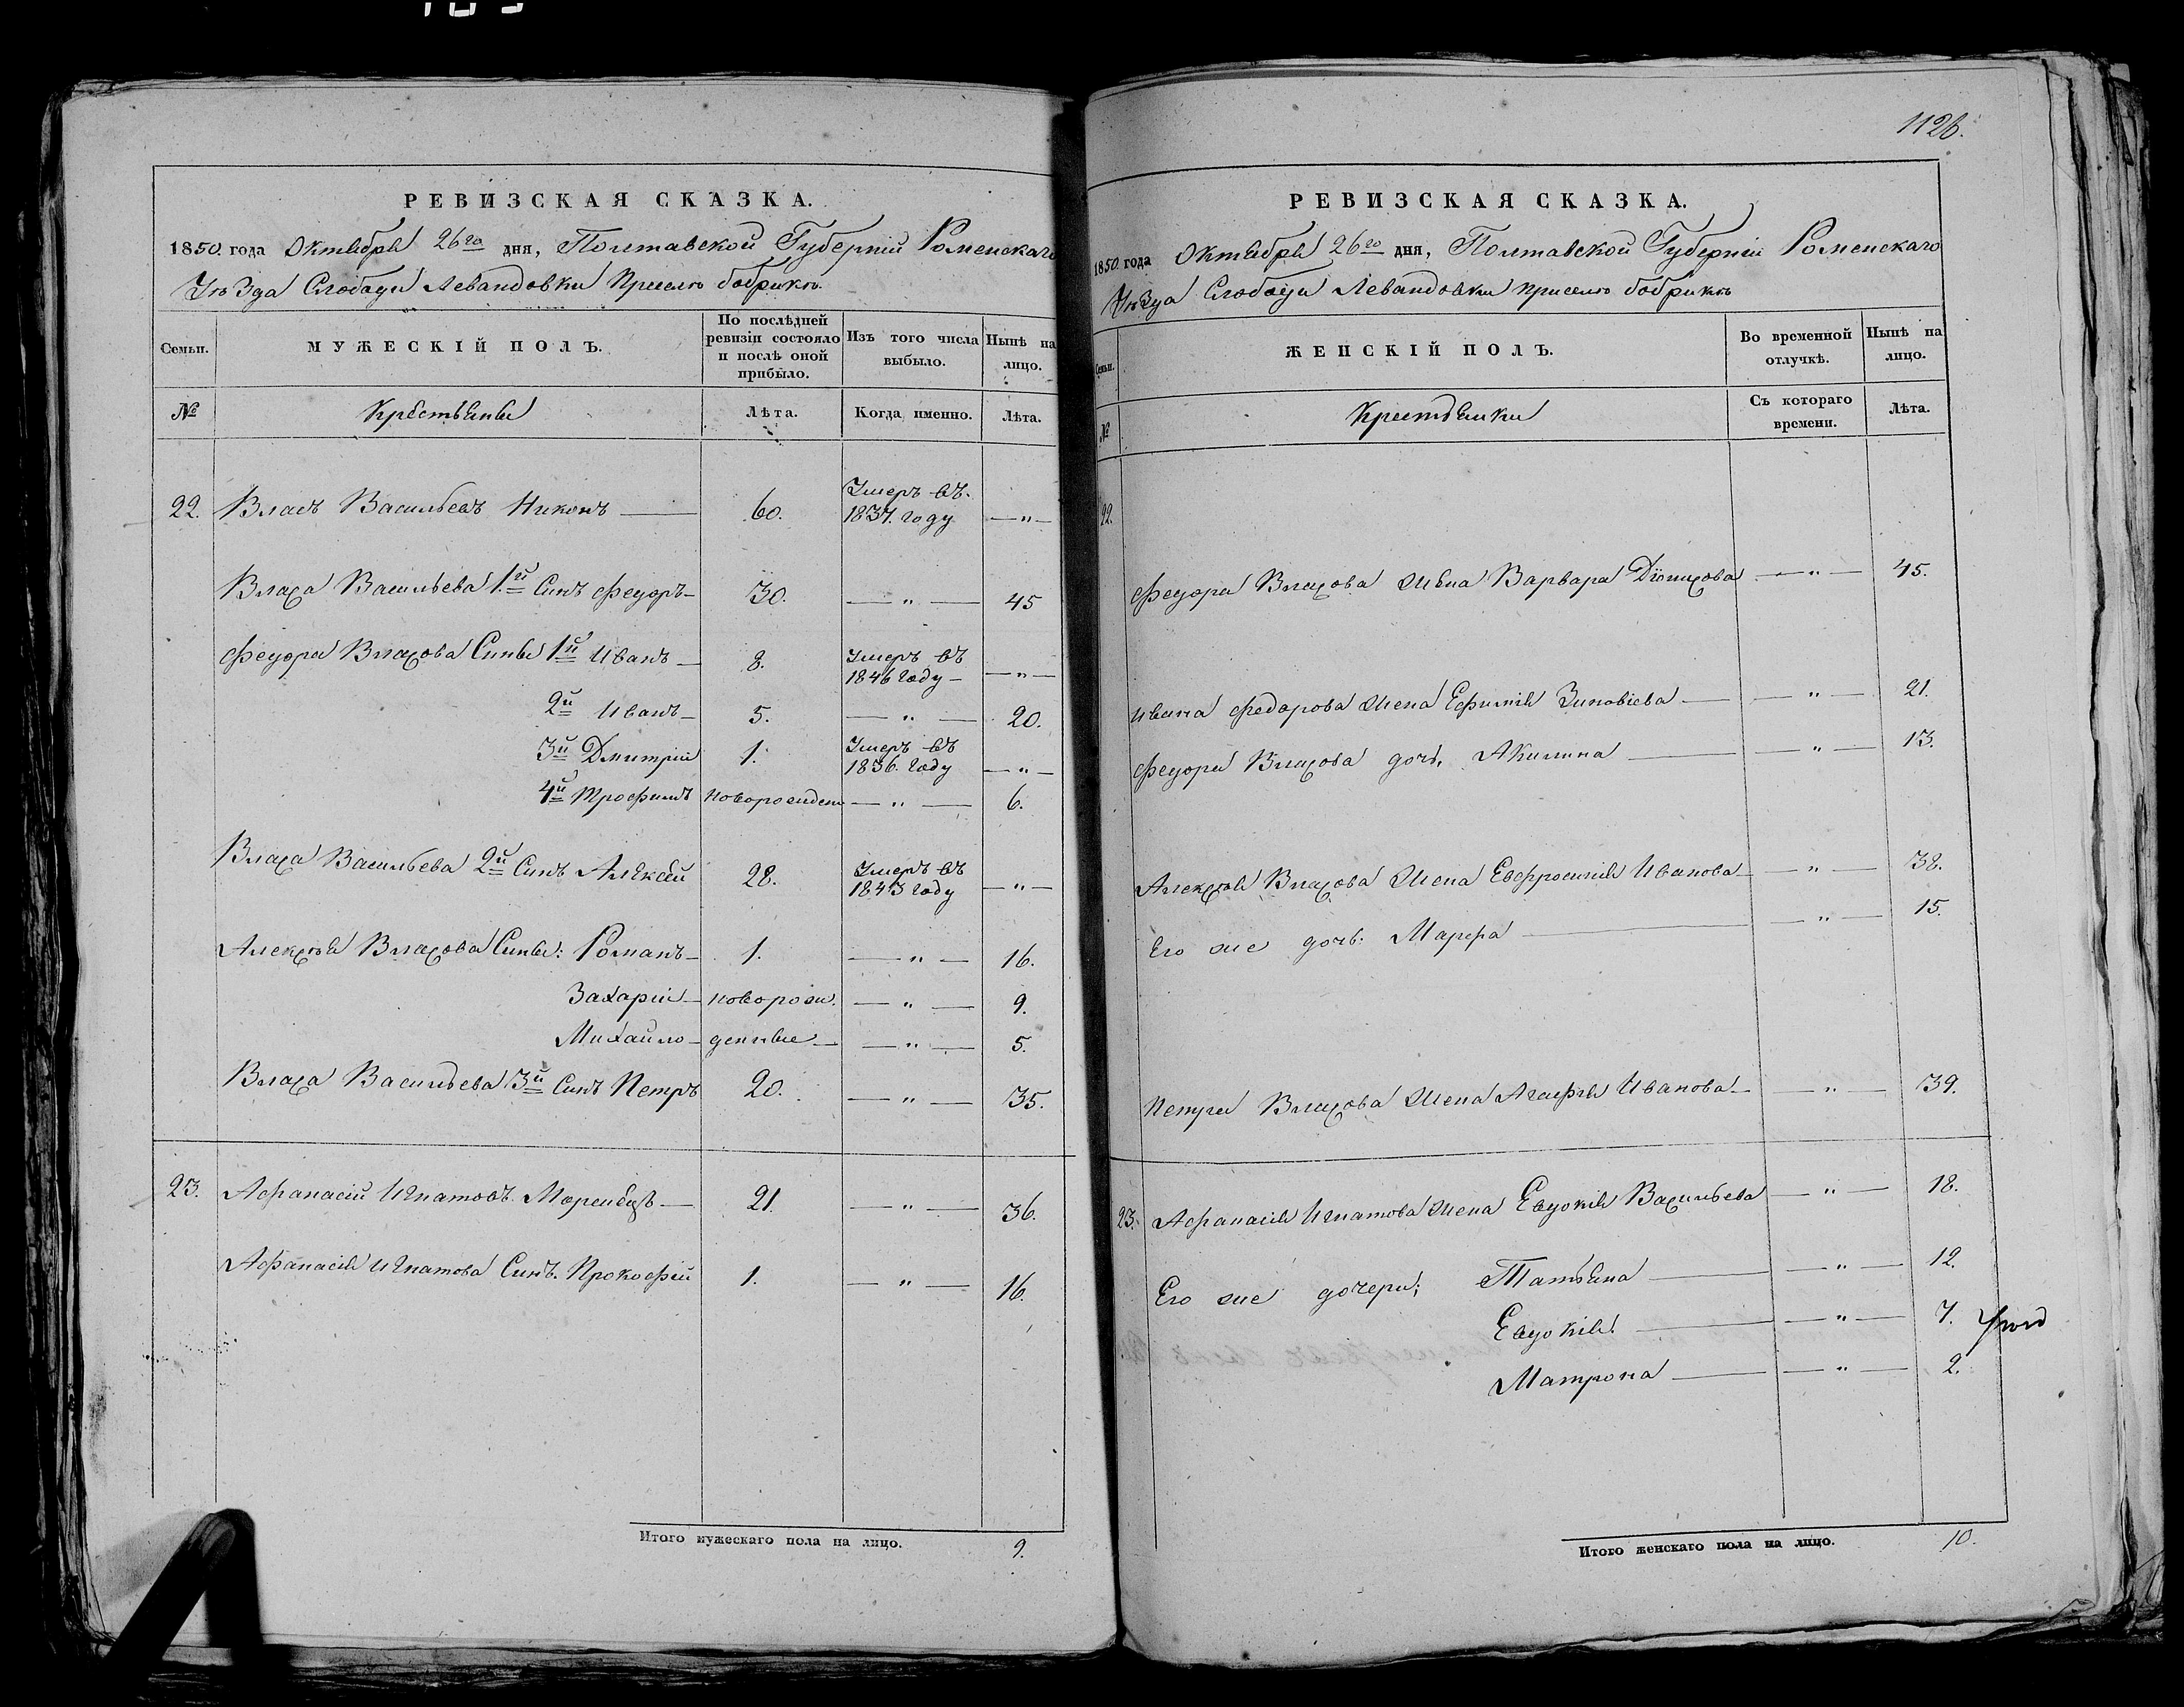 РЕВИЗСКАЯ СКАЗКА.
1850. года Октября 26го дня, Полтавской Губерніи Роменскаго
Уѣзда Слободи Левандовки Приселѣ бобрикѣ.
Семьи.
МУЖЕСКІЙ ПОЛЪ.
По послѣдней ревизіи состояло и послѣ оной прибыло.
Изъ того числа выбыло.
Нынѣ на лицо.
№
Крестьяны
Лѣта.
Когда именно.
Лѣта.
22. Власъ Васильевъ Никонъ — 60. Умеръ въ 1837. году — " —
Власа Васильева 1.й Синъ Федоръ — 30. — " — 45
Федора Власова Сины 1й Иванъ — 8. Умеръ въ 1846 году — — " —
2й Иванъ — 5. — " — 20.
3й Дмитрій 1. Умеръ въ 1836. году — " —
4й Трофимъ новорожден — " — 6.
Власа Васильева 2й Синъ Алексей 28. Умеръ въ 1843 году — " —
Алексѣя Власова Сины: Романъ — 1. — " — 16.
Захарій — новорож. — " — 9.
Михайло — денные — — " — 5.
Власа Васильева 3й Синъ Петръ 20. — " — 35.
23. Афанасій Игнатовъ 21. — " — 36.
Афанасія Игнатова Синъ. Прокофій 1. — " — 16.
Итого мужескаго пола на лицо. 9.
112б.
РЕВИЗСКАЯ СКАЗКА.
1850. года Октября 26го дня, Полтавской Губерніи Роменскаго
Уѣзда Слободи Левандовки приселѣ бобрикѣ
Семьи.
ЖЕНСКІЙ ПОЛЪ.
Во временной отлучкѣ.
Нынѣ на лицо.
№
Крестьянки
Съ котораго времени.
Лѣта.
22.
Федора Власова Жена Варвара — " — 45.
Ивана Федорова Жена Ефимія Зиновіева — — " — 21.
Федора Власова дочь, Акилина — — " — 13.
Алексѣя Власова Жена Евфросинія Иванова — — " — 38.
Его же дочь: Марфа — — " — 15.
Петра Власова Жена Агафія Иванова — — " — 39.
23. Афанасія Игнатова Жена Евдокія Васильева — " — 18.
Его же дочери; Татьяна — — " — 12.
Евдокія — — " — 7.
Матрона — — " — 2.
Итого женскаго пола на лицо. 10.